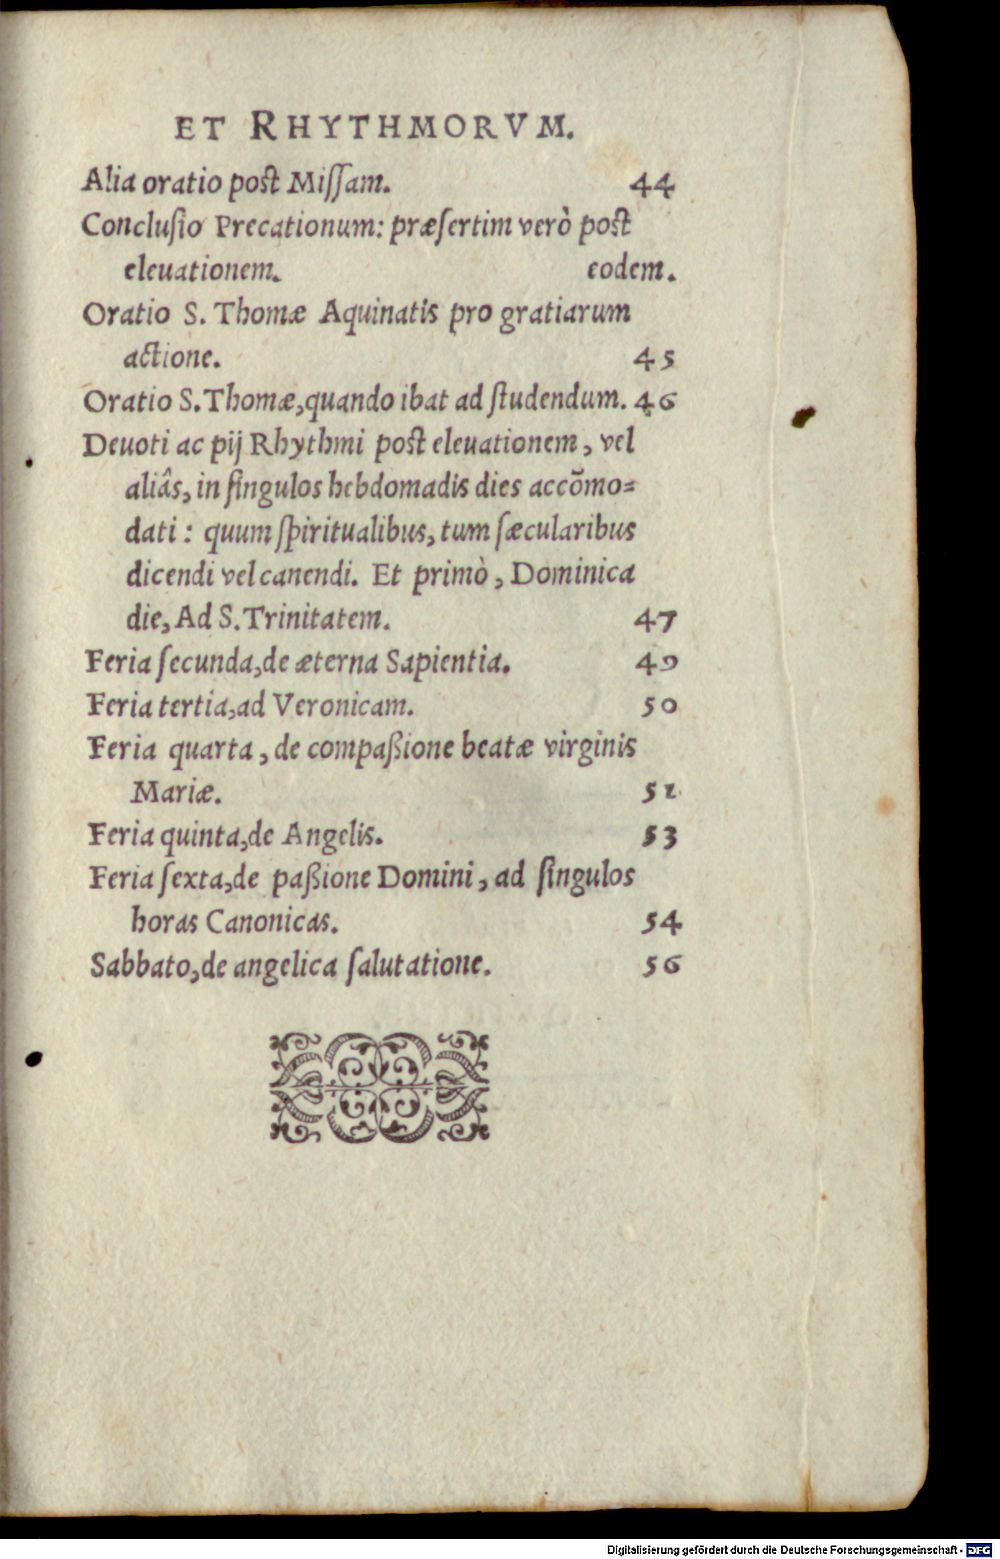 ET RHYTHMORVM.
Alia oratio post Miſſam. 44
Concluſio Precationum: præſertim verò post
eleuationem. eodem.
Oratio S. Thomæ Aquinatis pro gratiarum
actione. 45
Oratio S. Thomæ, quando ibat ad ſtudendum. 46
Deuoti ac pij Rhythmi post eleuationem, vel
aliâs, in ſingulos hebdomadis dies accõmo=
dati: quum ſpiritualibus, tum ſæcularibus
dicendi vel canendi. Et primò, Dominica
die, Ad S. Trinitatem. 47
Feria ſecunda, de æterna Sapientia. 49
Feria tertia, ad Veronicam. 50
Feria quarta, de compaßione beatæ virginis
Mariæ.
Feria quinta, de Angelis. 53
Feria ſexta, de paßione Domini, ad ſingulos
horas Canonicas. 54
Sabbato, de angelica ſalutatione. 56
Digitalisierung gefördert durch die Deutsche Forschungsgemeinschaft - DFG